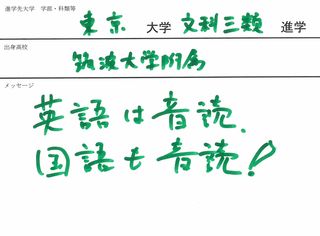 進学先大学 学部・科類等
東京 大学 文科三類 進学
出身高校
筑波大学附属
メッセージ
英語は音読、
国語も音読!